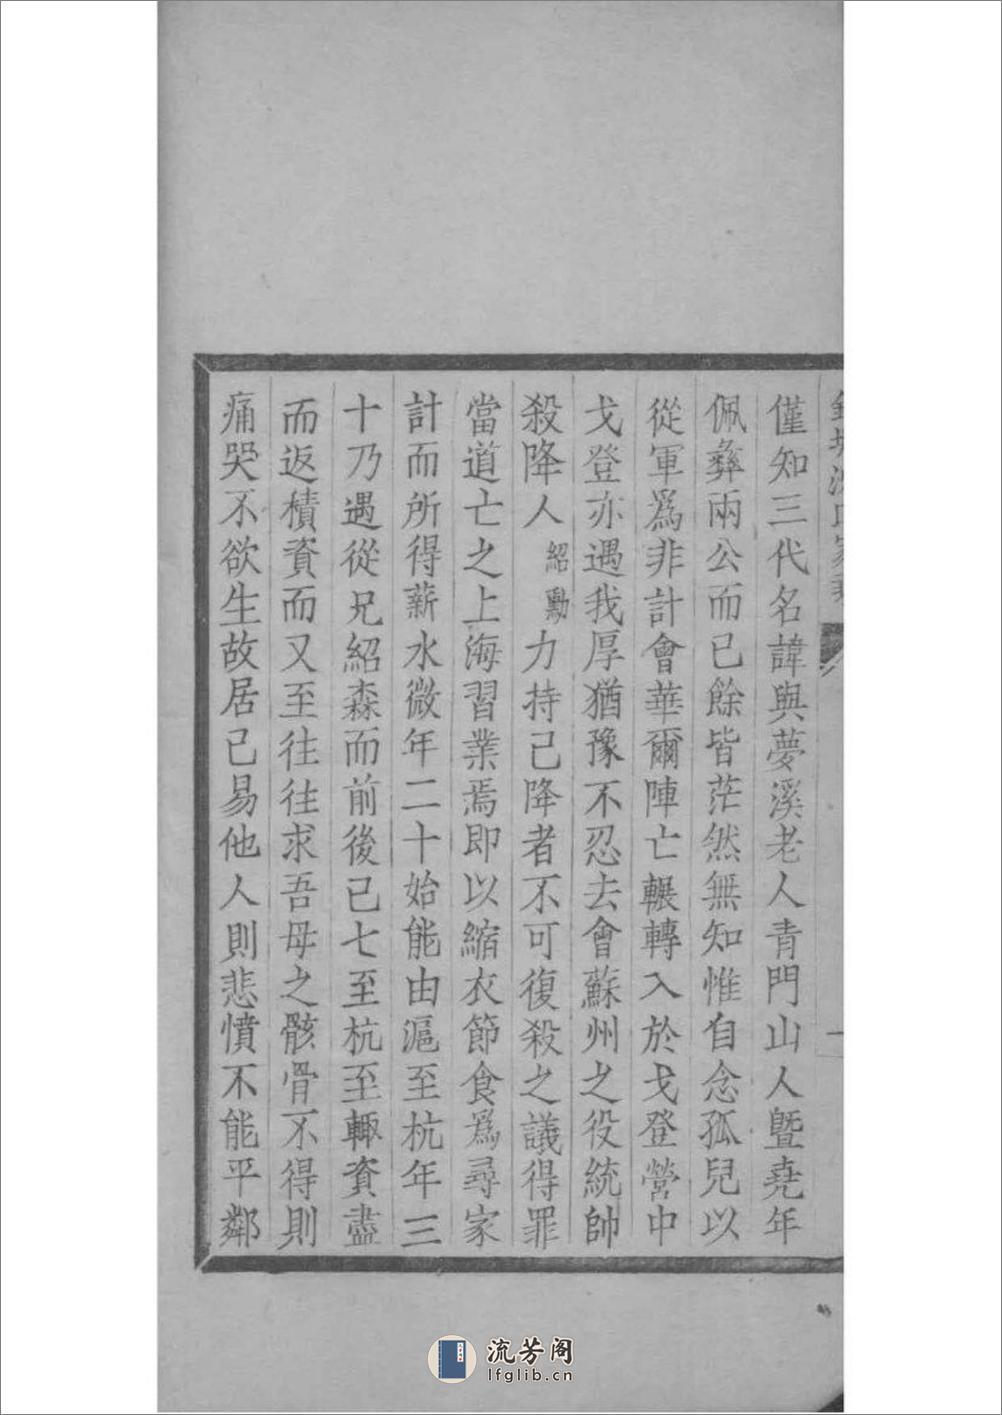 僅知三代名諱與夢溪老人青門山人曁堯年
佩彝兩公而已餘皆茫然無知惟自念孤兒以
從軍爲非計會華爾陣亡輾轉入於戈登營中
戈登亦遇我厚猶豫不忍去會蘇州之役統帥
殺降人紹勳力持已降者不可復殺之議得罪
當道亡之上海習業焉即以縮衣節食爲尋家
計而所得薪水微年二十始能由滬至杭年三
十乃遇從兄紹森而前後已七至杭至輙資盡
而返積資而又至往往求吾母之骸骨不得則
痛哭不欲生故居已易他人則悲憤不能平鄰
流芳阁
lfglib.cn